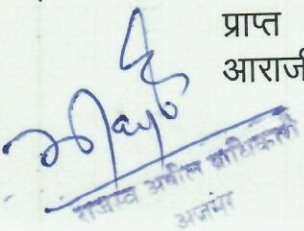 प्राप्त
आराजी
राजस्व अपील प्राधिकारी
अजमेर